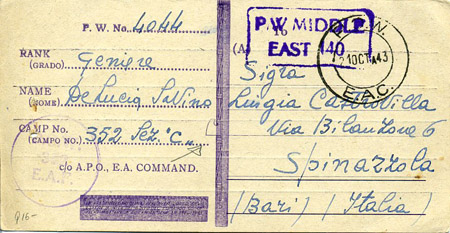 P. W. No. 4044
RANK
(GRADO) Geniere
NAME
(NOME) De Lucia Savino
CAMP No.
(CAMPO NO.) 352 Sez. "C"
c/o A.P.O., E.A. COMMAND.
E.A.P.
916-
P.W. MIDDLE
16
EAST 40
(A)
10 OCT 43
E.A.C.
Sigra
Luigia Castrovilla
Via Bilanzone 6
Spinazzola
(Bari) (Italia)